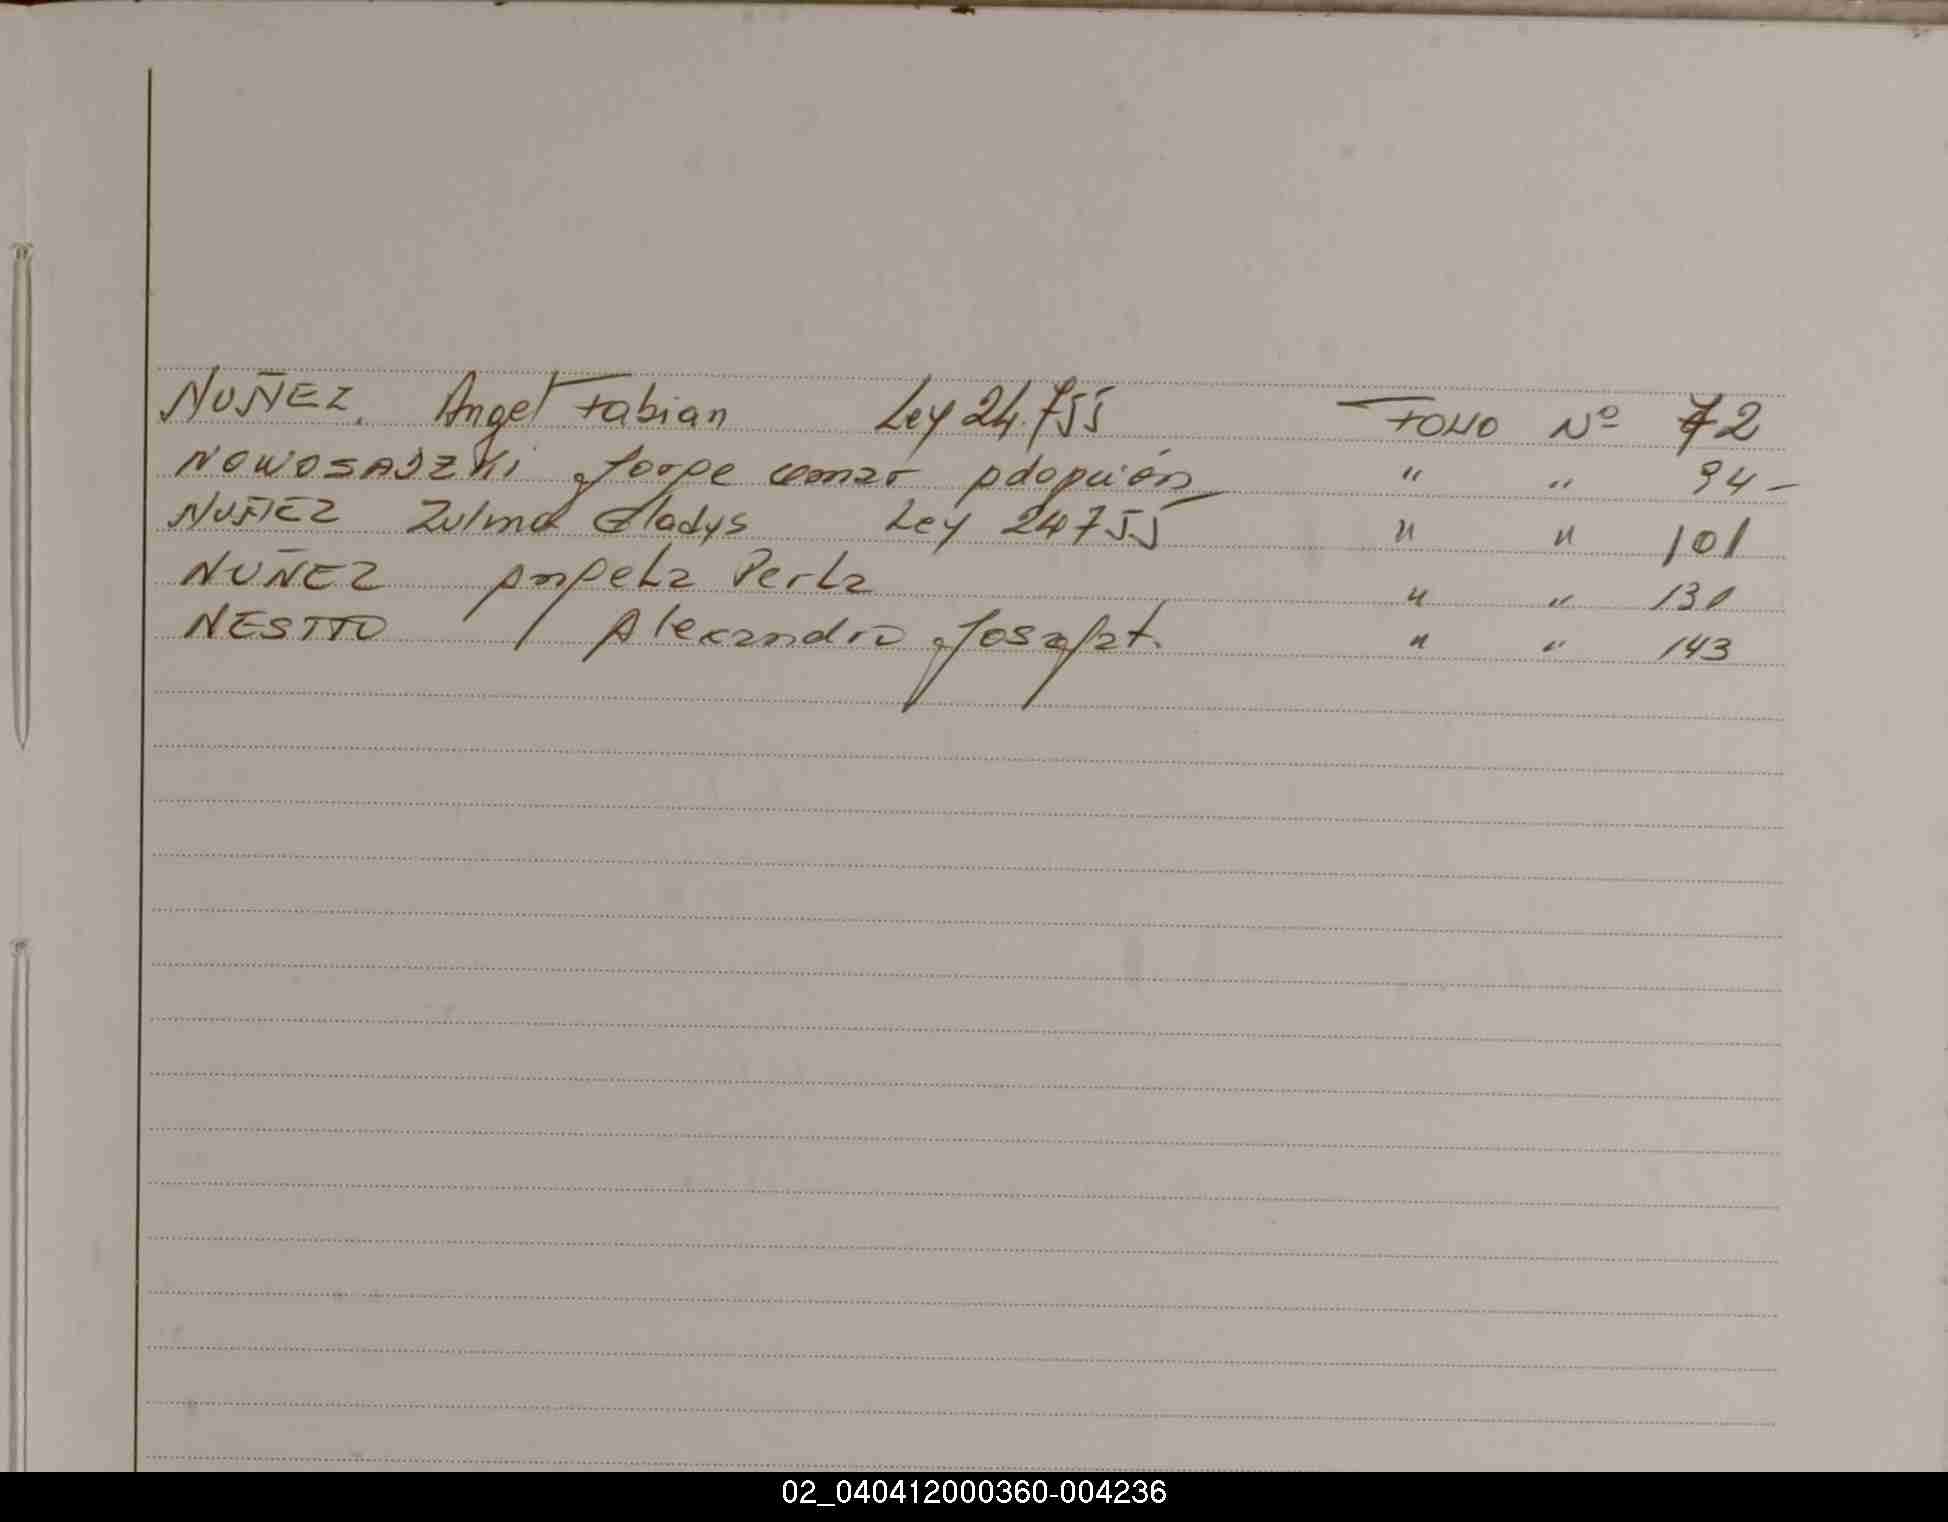 NUÑEZ. Angel Fabian Ley 24.755 FOLIO Nº 72
NOWOSADZKI Jorge Omar Adopción " " 94-
NUÑEZ Zulma Gladys Ley 24755 " " 101
NUÑEZ Angela Perla " " 131
NESTTO Alexandro Josafat. " " 143
02_040412000360-004236